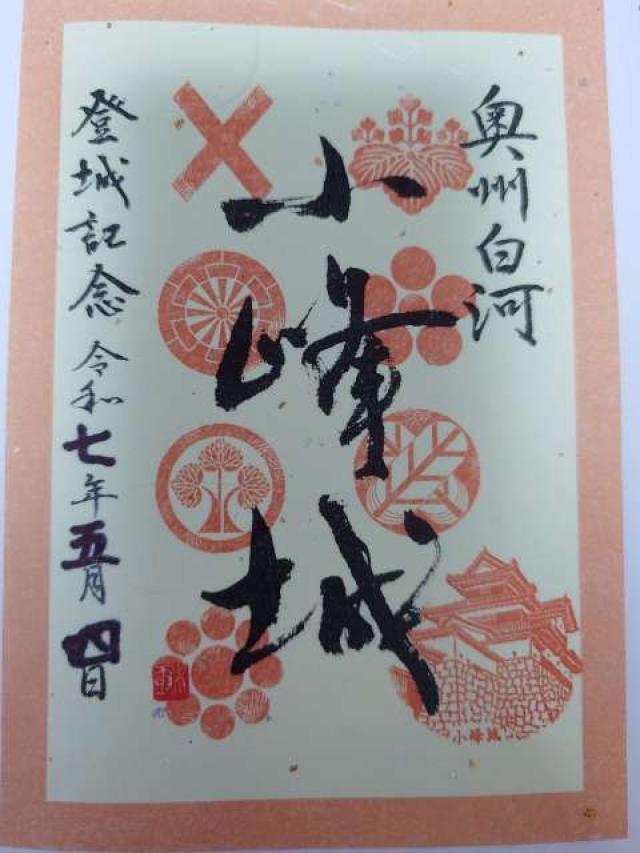 奥州白河
小峰城
登城記念 令和七年五月四日
小峰城